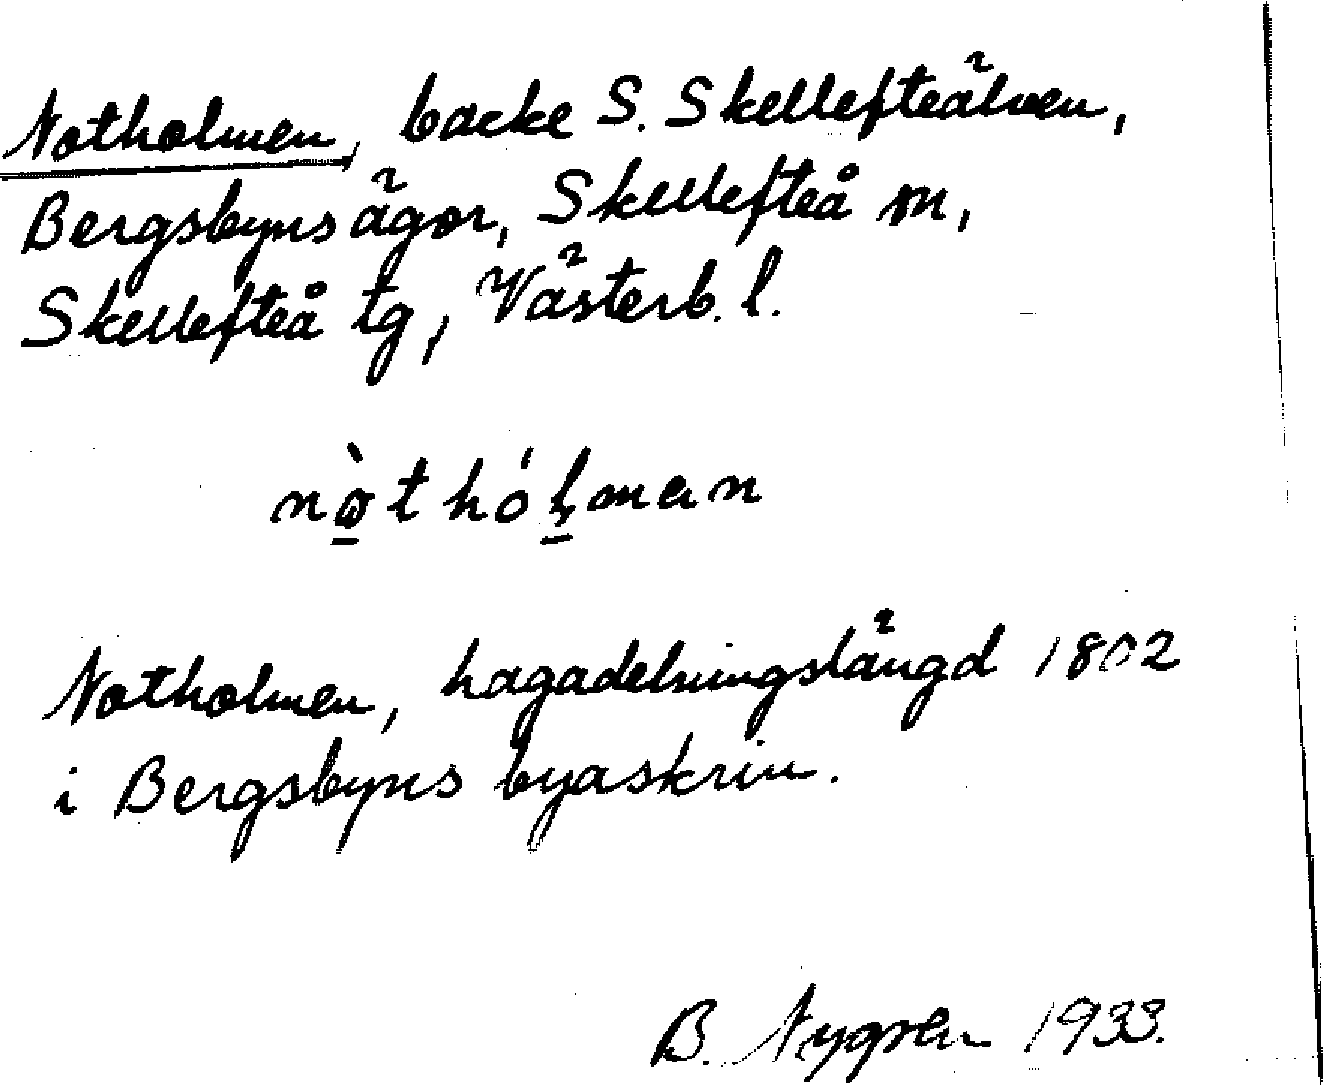 Notholmen, backe S. Skellefteälven,
Bergsbyns ägor, Skellefteå m,
Skellefteå tg, Västerb. l.
nò̱thóḻman
Notholmen, hagadelningslängd 1802
i Bergsbyns byaskrin.
B. Nygren 1933.